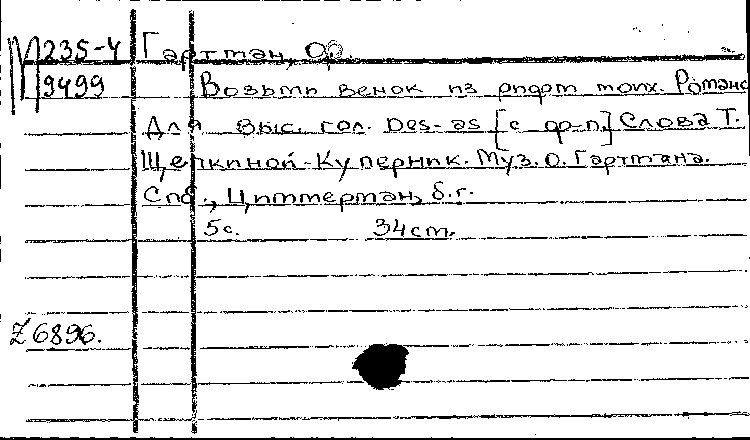 М 235-4 Гартман, О.
9499 Возьми венок из рифм моих. Романс
Для выс. гол. Des-as [с ф-п.] Слова Т.
Щепкиной-Куперник. Муз. О. Гартмана.
Спб., Циммерман, б.г.
5с. 34см.
Z 6896.